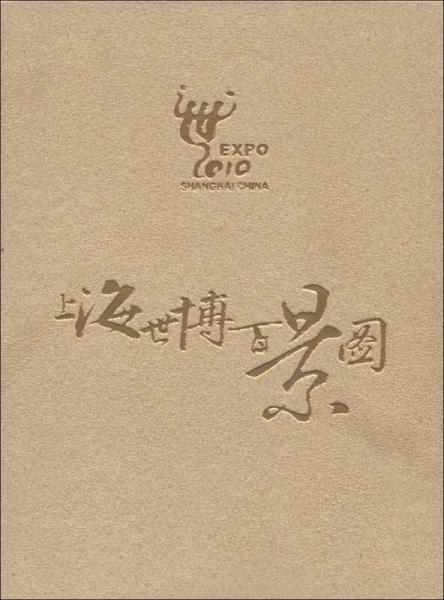 EXPO
2010
SHANGHAI CHINA
上海世博百景图